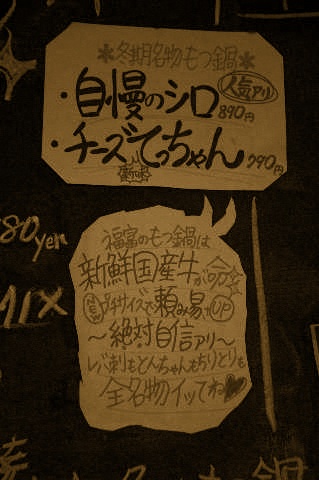 *冬期名物もつ鍋*
・自慢のシロ 人気アリ 890円
・チーズてっちゃん 790円
新味
80yen
MIX
福富のもつ鍋は
新鮮国産牛が命
NEW 別サイズで頼み易さUP
〜絶対自信アリ〜
レバ刺もとんちゃんもちりとりも
全名物イッてね♥
鍋